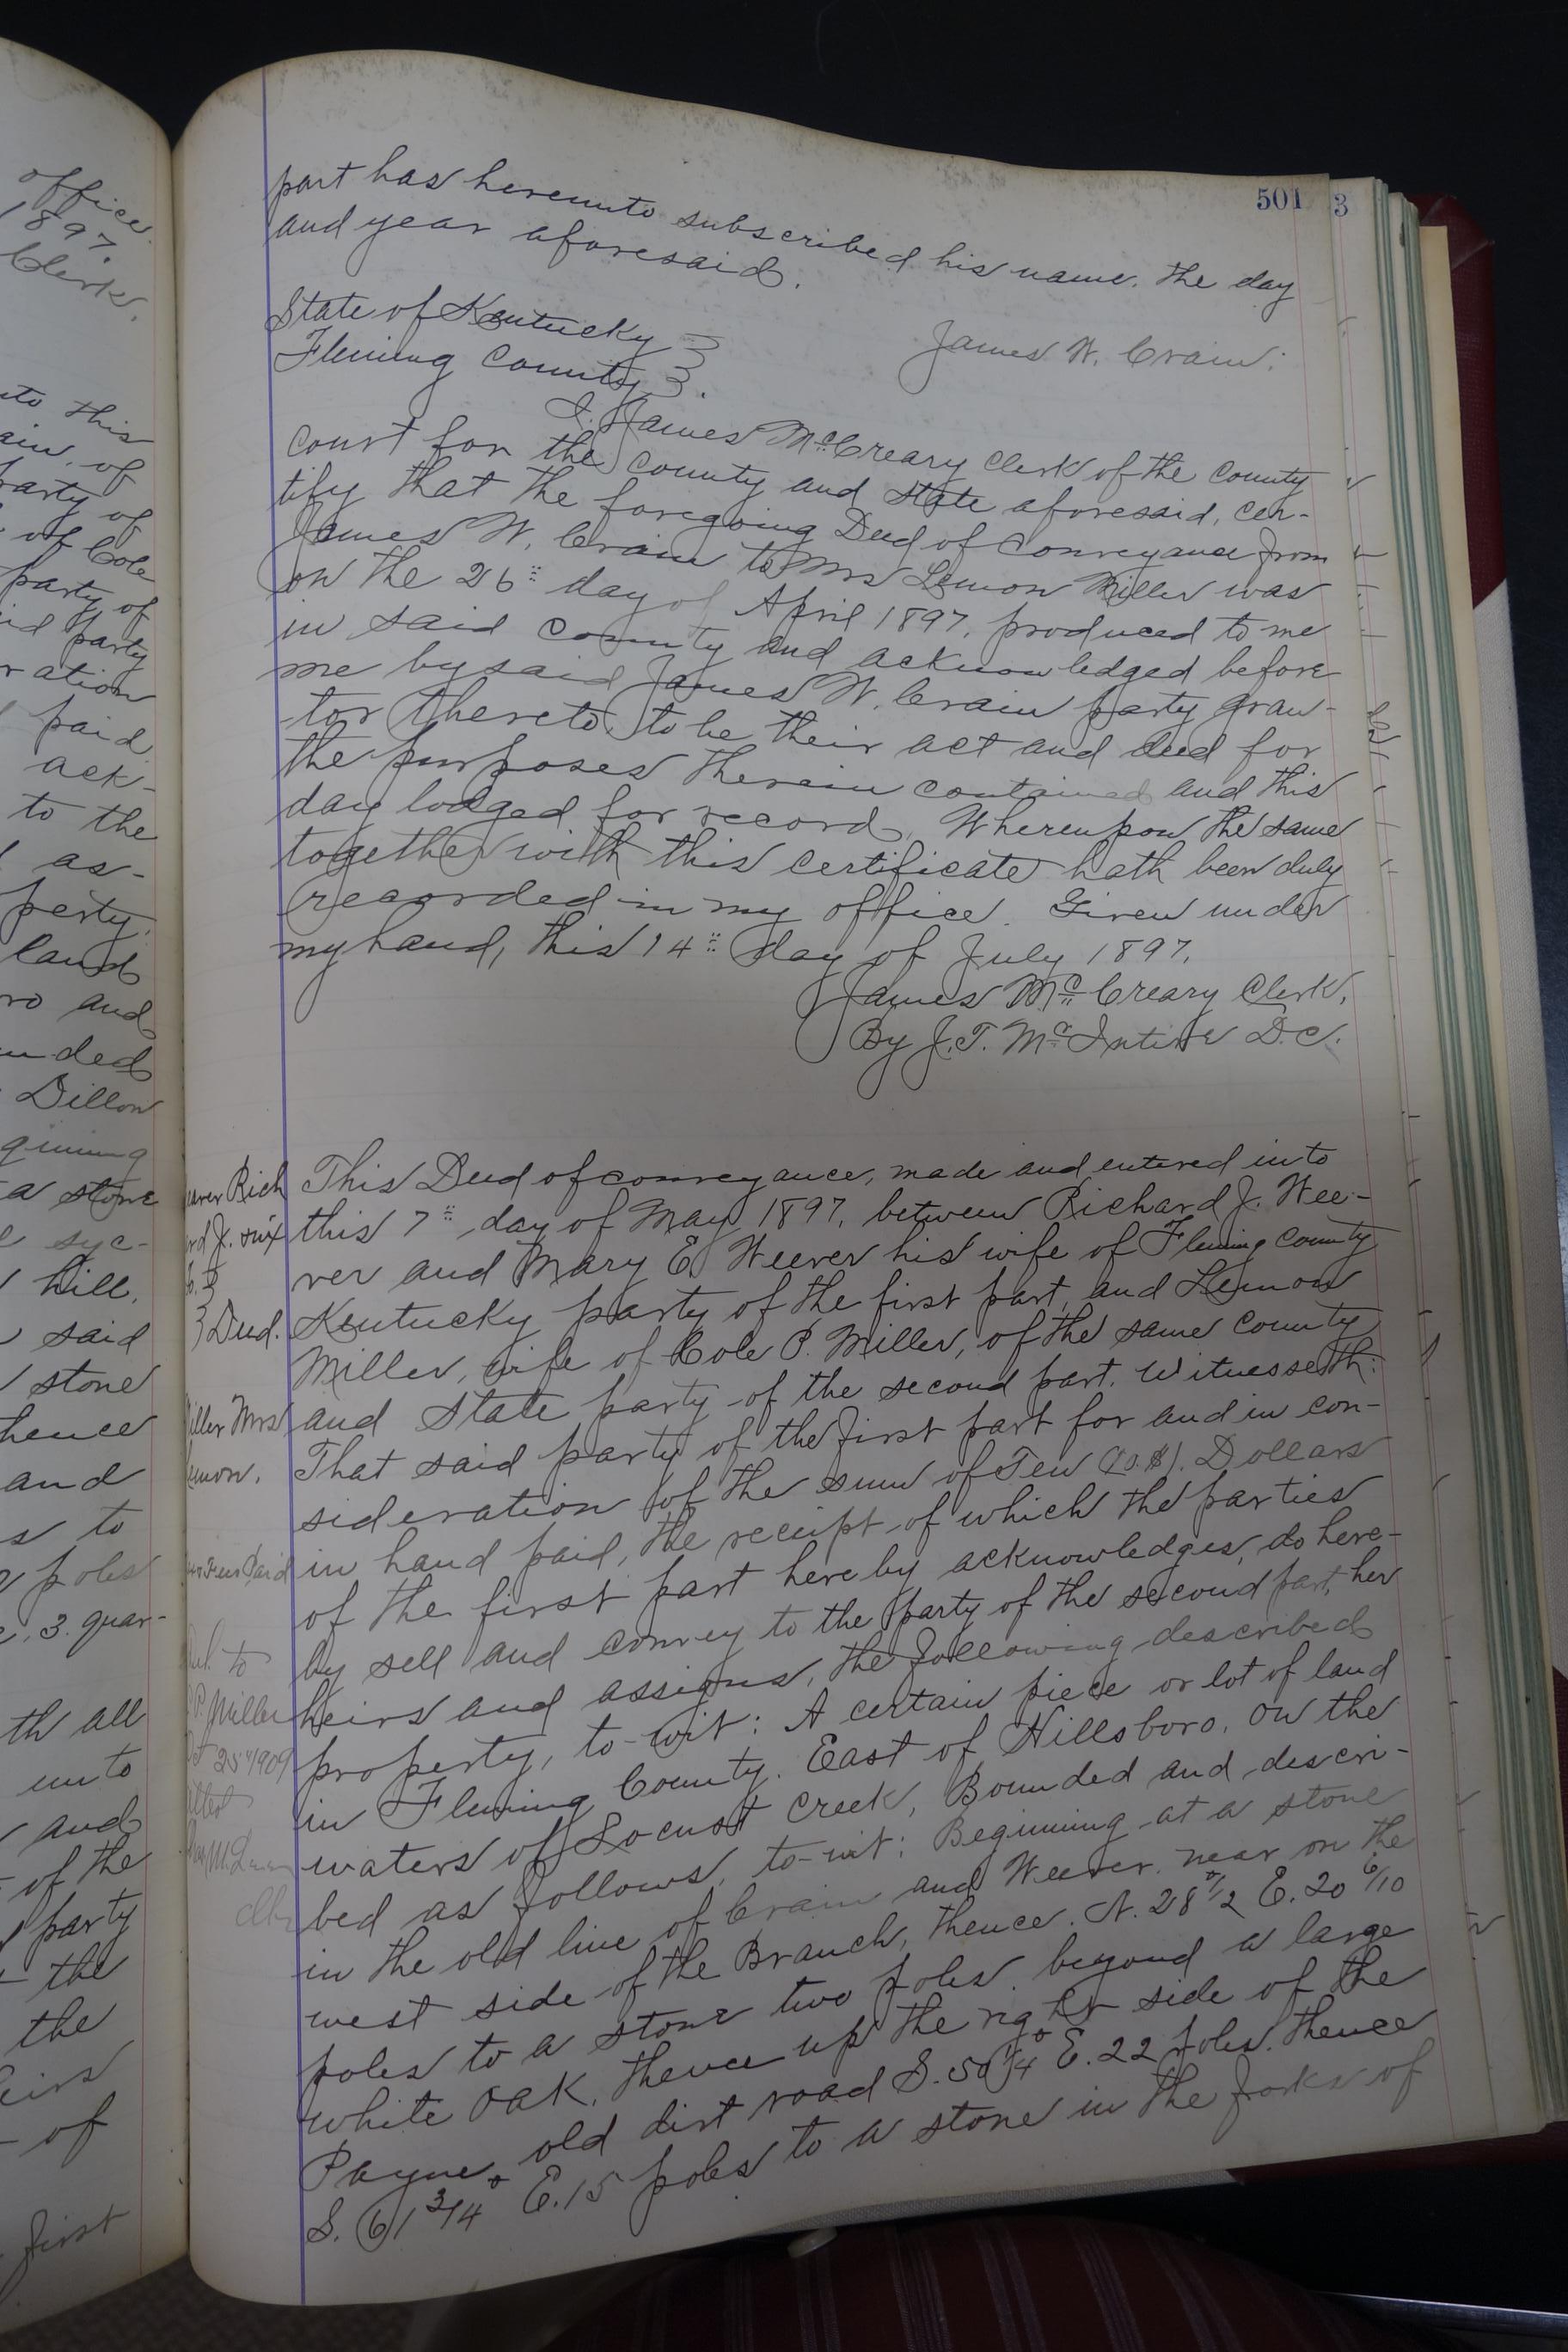 501
3
part has hereunto subscribed his name, the day
and year aforesaid.
James W. Crain.
State of Kentucky
Fleming County
I. James McCreary Clerk of the County
Court for the County and State aforesaid, cer-
tify that the foregoing Deed of Conveyance from
James W. Crain to Mrs Lemon Miller was
on the 26" day of April 1897, produced to me
in said County and acknowledged before
me by said James W. Crain party gran-
tor thereto, to be their act and deed for
the purposes therein contained and this
day lodged for record, Whereupon the same
together with this certificate hath been duly
recorded in my office. Given under
my hand, this 14" day of July 1897.
James McCreary Clerk,
By J. T. McIntire D.C.
This Deed of conveyance, made and entered into
this 7" day of May 1897, between Richard J. Wee-
ver and Mary E. Weever his wife of Fleming County
Kentucky party of the first part, and Lemon
Miller, wife of Cole P. Miller, of the same County
and State party of the second part. Witnesseth:
That said party of the first part for and in con-
sideration of the sum of Ten (10.$). Dollars
in hand paid, the receipt of which the parties
of the first part hereby acknowledges, do here-
by sell and convey to the party of the second part, her
heirs and assigns, the following described
property, to-wit: A certain piece or lot of land
in Fleming County. East of Hillsboro, on the
waters of Locust Creek, Bounded and descri-
bed as follows, to-wit: Beginning at a stone
in the old line of Crain and Weever near on the
west side of the Branch, thence. N. 28 1/2° E. 20 6/10
poles to a stone two poles beyond a large
white oak, thence up the right side of the
Payne old dirt road S. 50 1/4° E. 22 poles. thence
S. 61 3/4° E. 15 poles to a stone in the forks of
Rich
rd J.
Deed.
iller Mrs
emon.
to
P. Miller
25" 1909
office
1897.
Clerk.
to this
ain, of
party of
of Cole
party of
id party
ration
paid
ack-
to the
as-
perty,
land
ro and
unded
Dillon
ginning
a stone
syc-
hill,
said
stone
hence
and
s to
poles
3. quar-
th all
unto
and
of the
party
the
the
eirs
of
first